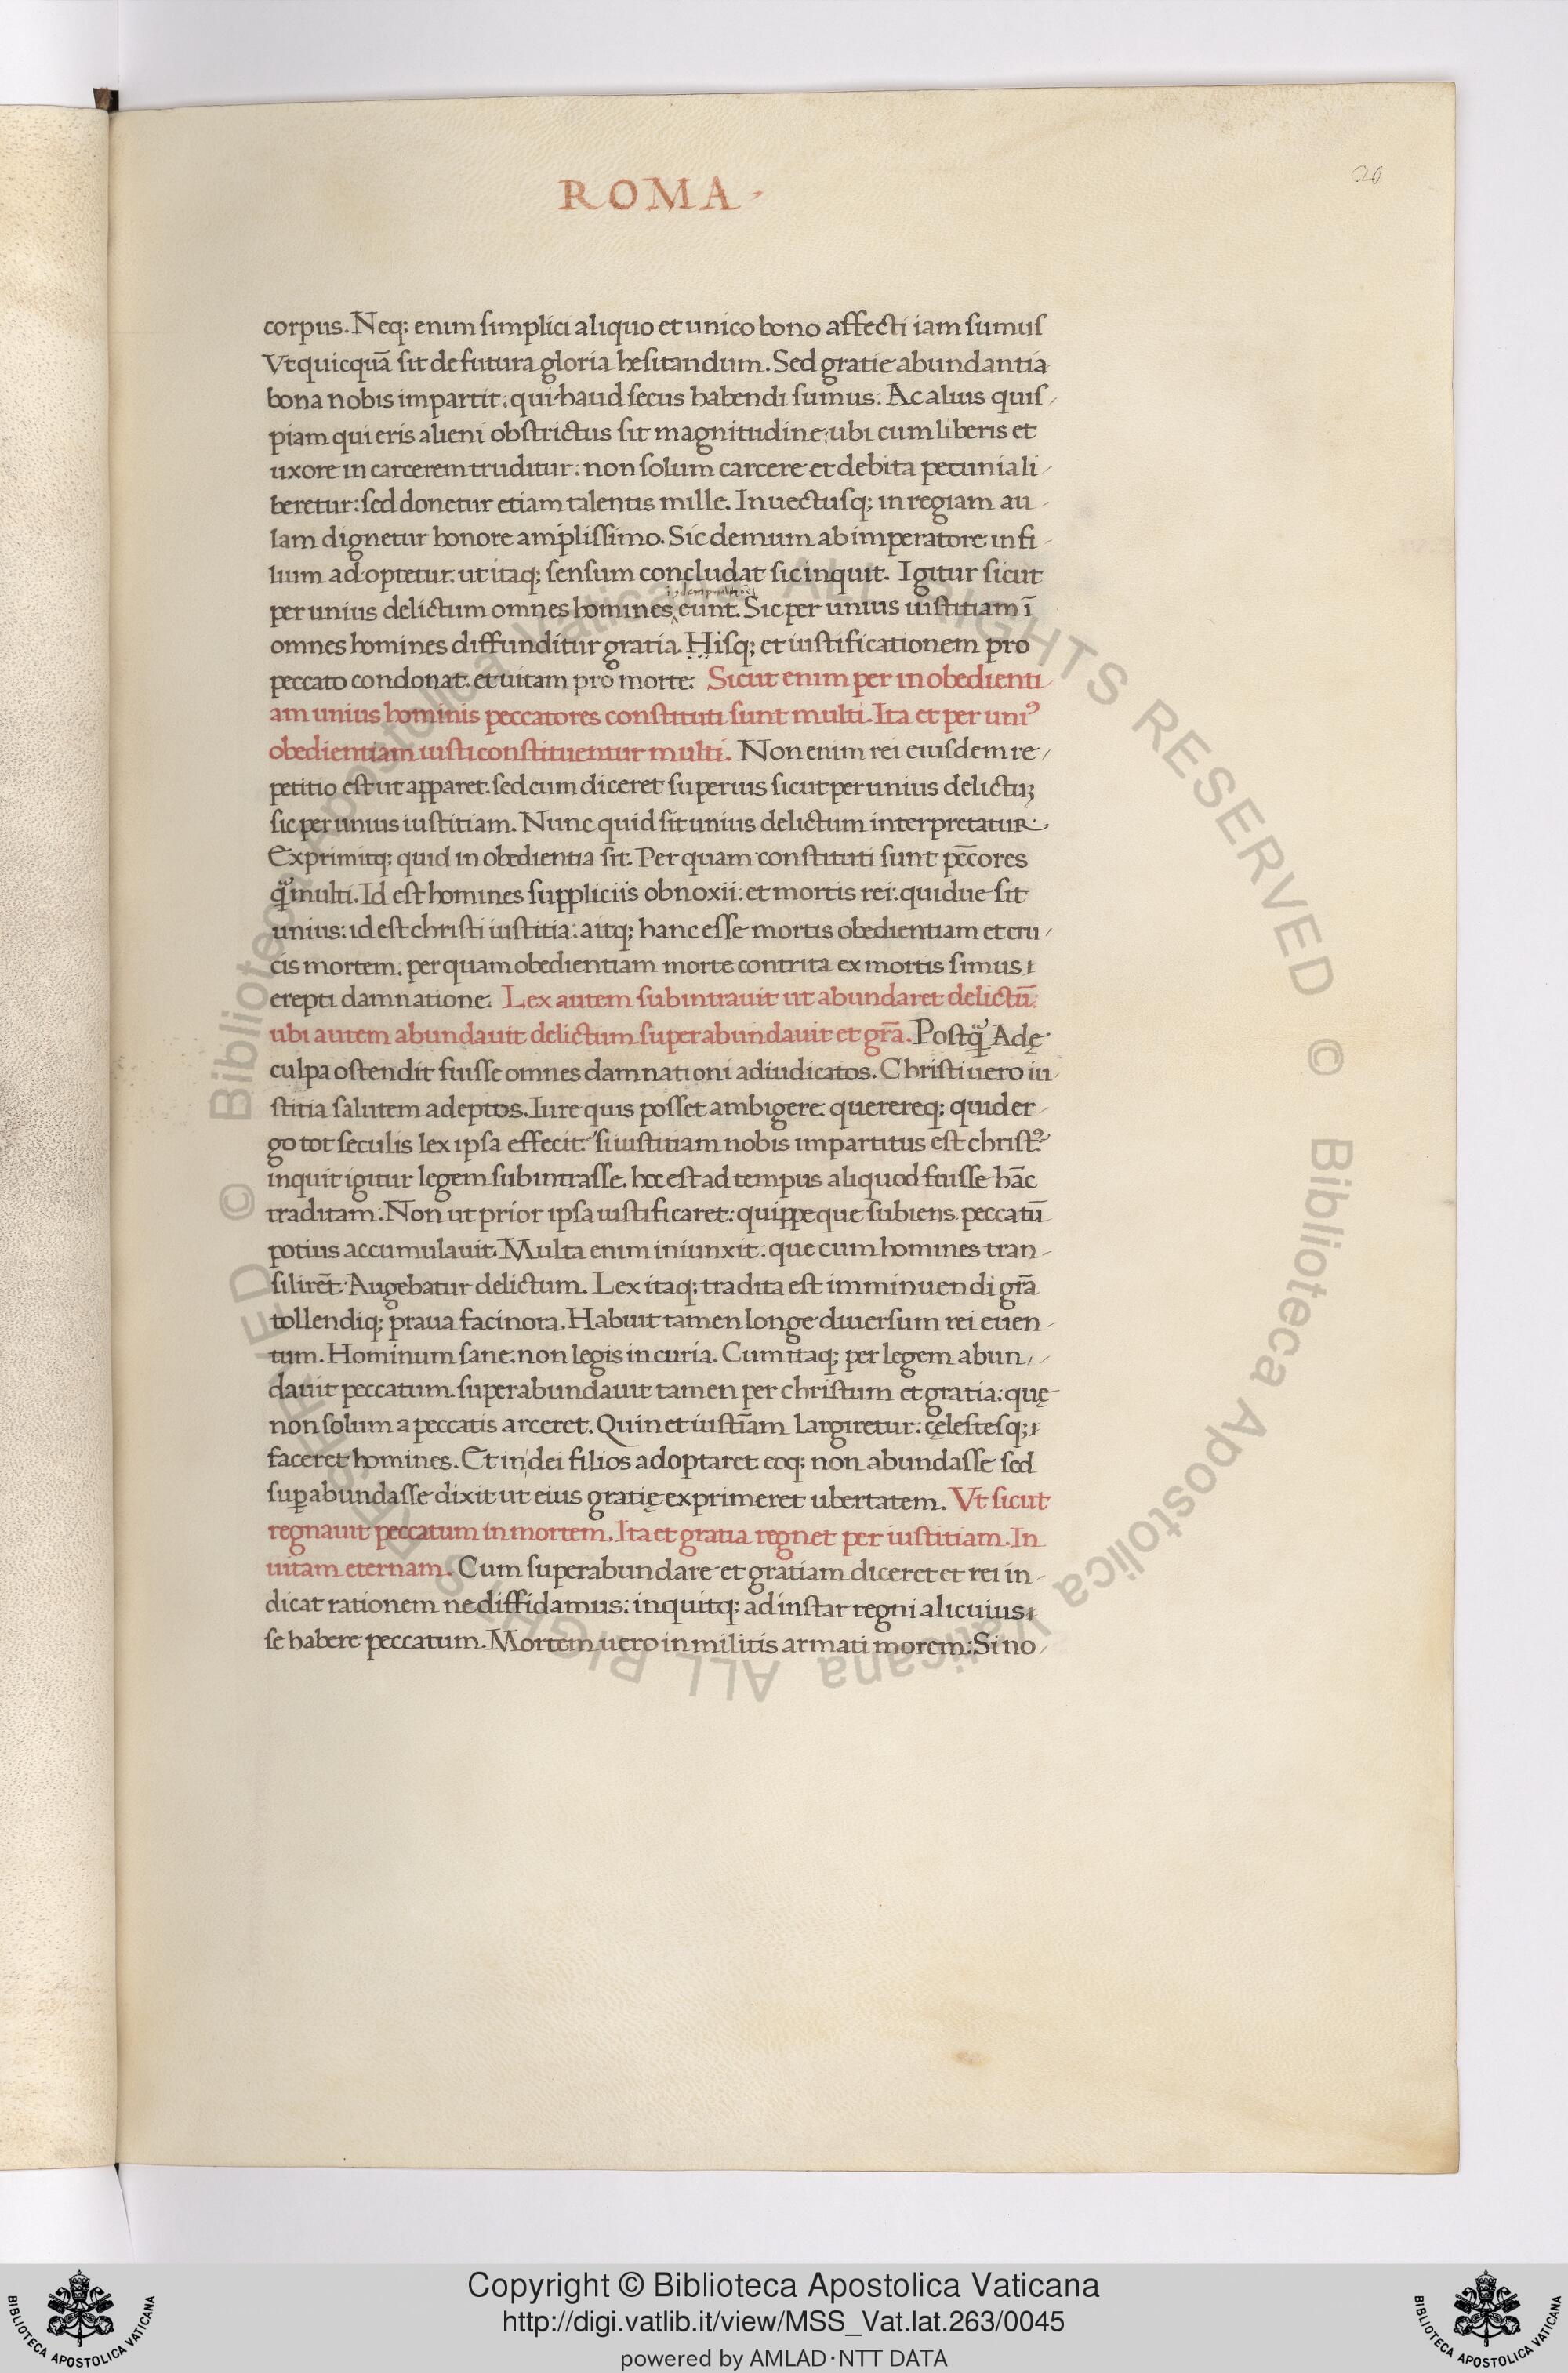 ROMA
20
corpus. Neq; enim simplici aliquo et unico bono affecti iam sumus
Vt quicquā sit de futura gloria hesitandum. Sed gratie abundantia
bona nobis impartit: qui haud secus habendi sumus: Ac alius quis-
piam qui eris alieni obstrictus sit magnitudine: ubi cum liberis et
uxore in carcerem truditur: non solum carcere et debita pecunia li-
beretur: sed donetur etiam talentis mille. Inuectusq; in regiam au-
lam dignetur honore amplissimo. Sic demum ab imperatore in fi-
lium adoptetur. ut itaq; sensum concludat sic inquit. Igitur sicut
per unius delictum omnes homines eunt. Sic per unius iustitiam ī
omnes homines diffunditur gratia. Hisq; et iustificationem pro
peccato condonat. et uitam pro morte. Sicut enim per inobedienti-
am unius hominis peccatores constituti sunt multi. Ita et per uniꝰ
obedientiam iusti constituentur multi. Non enim rei eiusdem re-
petitio est ut apparet. sed cum diceret superius sicut per unius delictuȝ
sic per unius iustitiam. Nunc quid sit unius delictum interpretatur.
Exprimitq; quid inobedientia sit. Per quam constituti sunt pēcores
q̄ multi. Id est homines suppliciis obnoxii: et mortis rei: quidue sit
unius: id est christi iustitia: aitq; hanc esse mortis obedientiam et cru-
cis mortem. per quam obedientiam morte contrita ex mortis simus
erepti damnatione. Lex autem subintrauit ut abundaret delictū:
ubi autem abundauit delictum superabundauit et grā. Postq̄ Adę
culpa ostendit fuisse omnes damnationi adiudicatos. Christi uero iu-
stitia salutem adeptos. Iure quis posset ambigere. querereq; quid er-
go tot seculis lex ipsa effecit: si iustitiam nobis impartitus est christꝰ?
inquit igitur legem subintrasse. hoc est ad tempus aliquod fuisse hāc
traditam: Non ut prior ipsa iustificaret: quippe que subiens peccatū
potius accumulauit. Multa enim iniunxit: que cum homines tran-
silirēt: Augebatur delictum. Lex itaq; tradita est imminuendi grā
tollendiq; praua facinora. Habuit tamen longe diuersum rei euen-
tum. Hominum sane: non legis incuria. Cum itaq; per legem abun-
dauit peccatum. superabundauit tamen per christum et gratia: quę
non solum a peccatis arceret. Quin et iustīam largiretur: cęlestesq;
faceret homines. Et in dei filios adoptaret. eoq; non abundasse sed
suꝑabundasse dixit ut eius gratię exprimeret ubertatem. Vt sicut
regnauit peccatum in mortem. Ita et gratia regnet per iustitiam. In
uitam eternam. Cum superabundare et gratiam diceret et rei in-
dicat rationem ne diffidamus: inquitq; ad instar regni alicuius
se habere peccatum. Mortem uero in militis armati morem: Si no-
© Biblioteca Apostolica Vaticana ALL RIGHTS RESERVED © Biblioteca Apostolica Vaticana ALL RIGHTS RESERVED
Copyright © Biblioteca Apostolica Vaticana
http://digi.vatlib.it/view/MSS_Vat.lat.263/0045
powered by AMLAD·NTT DATA
BIBLIOTECA APOSTOLICA VATICANA
BIBLIOTECA APOSTOLICA VATICANA